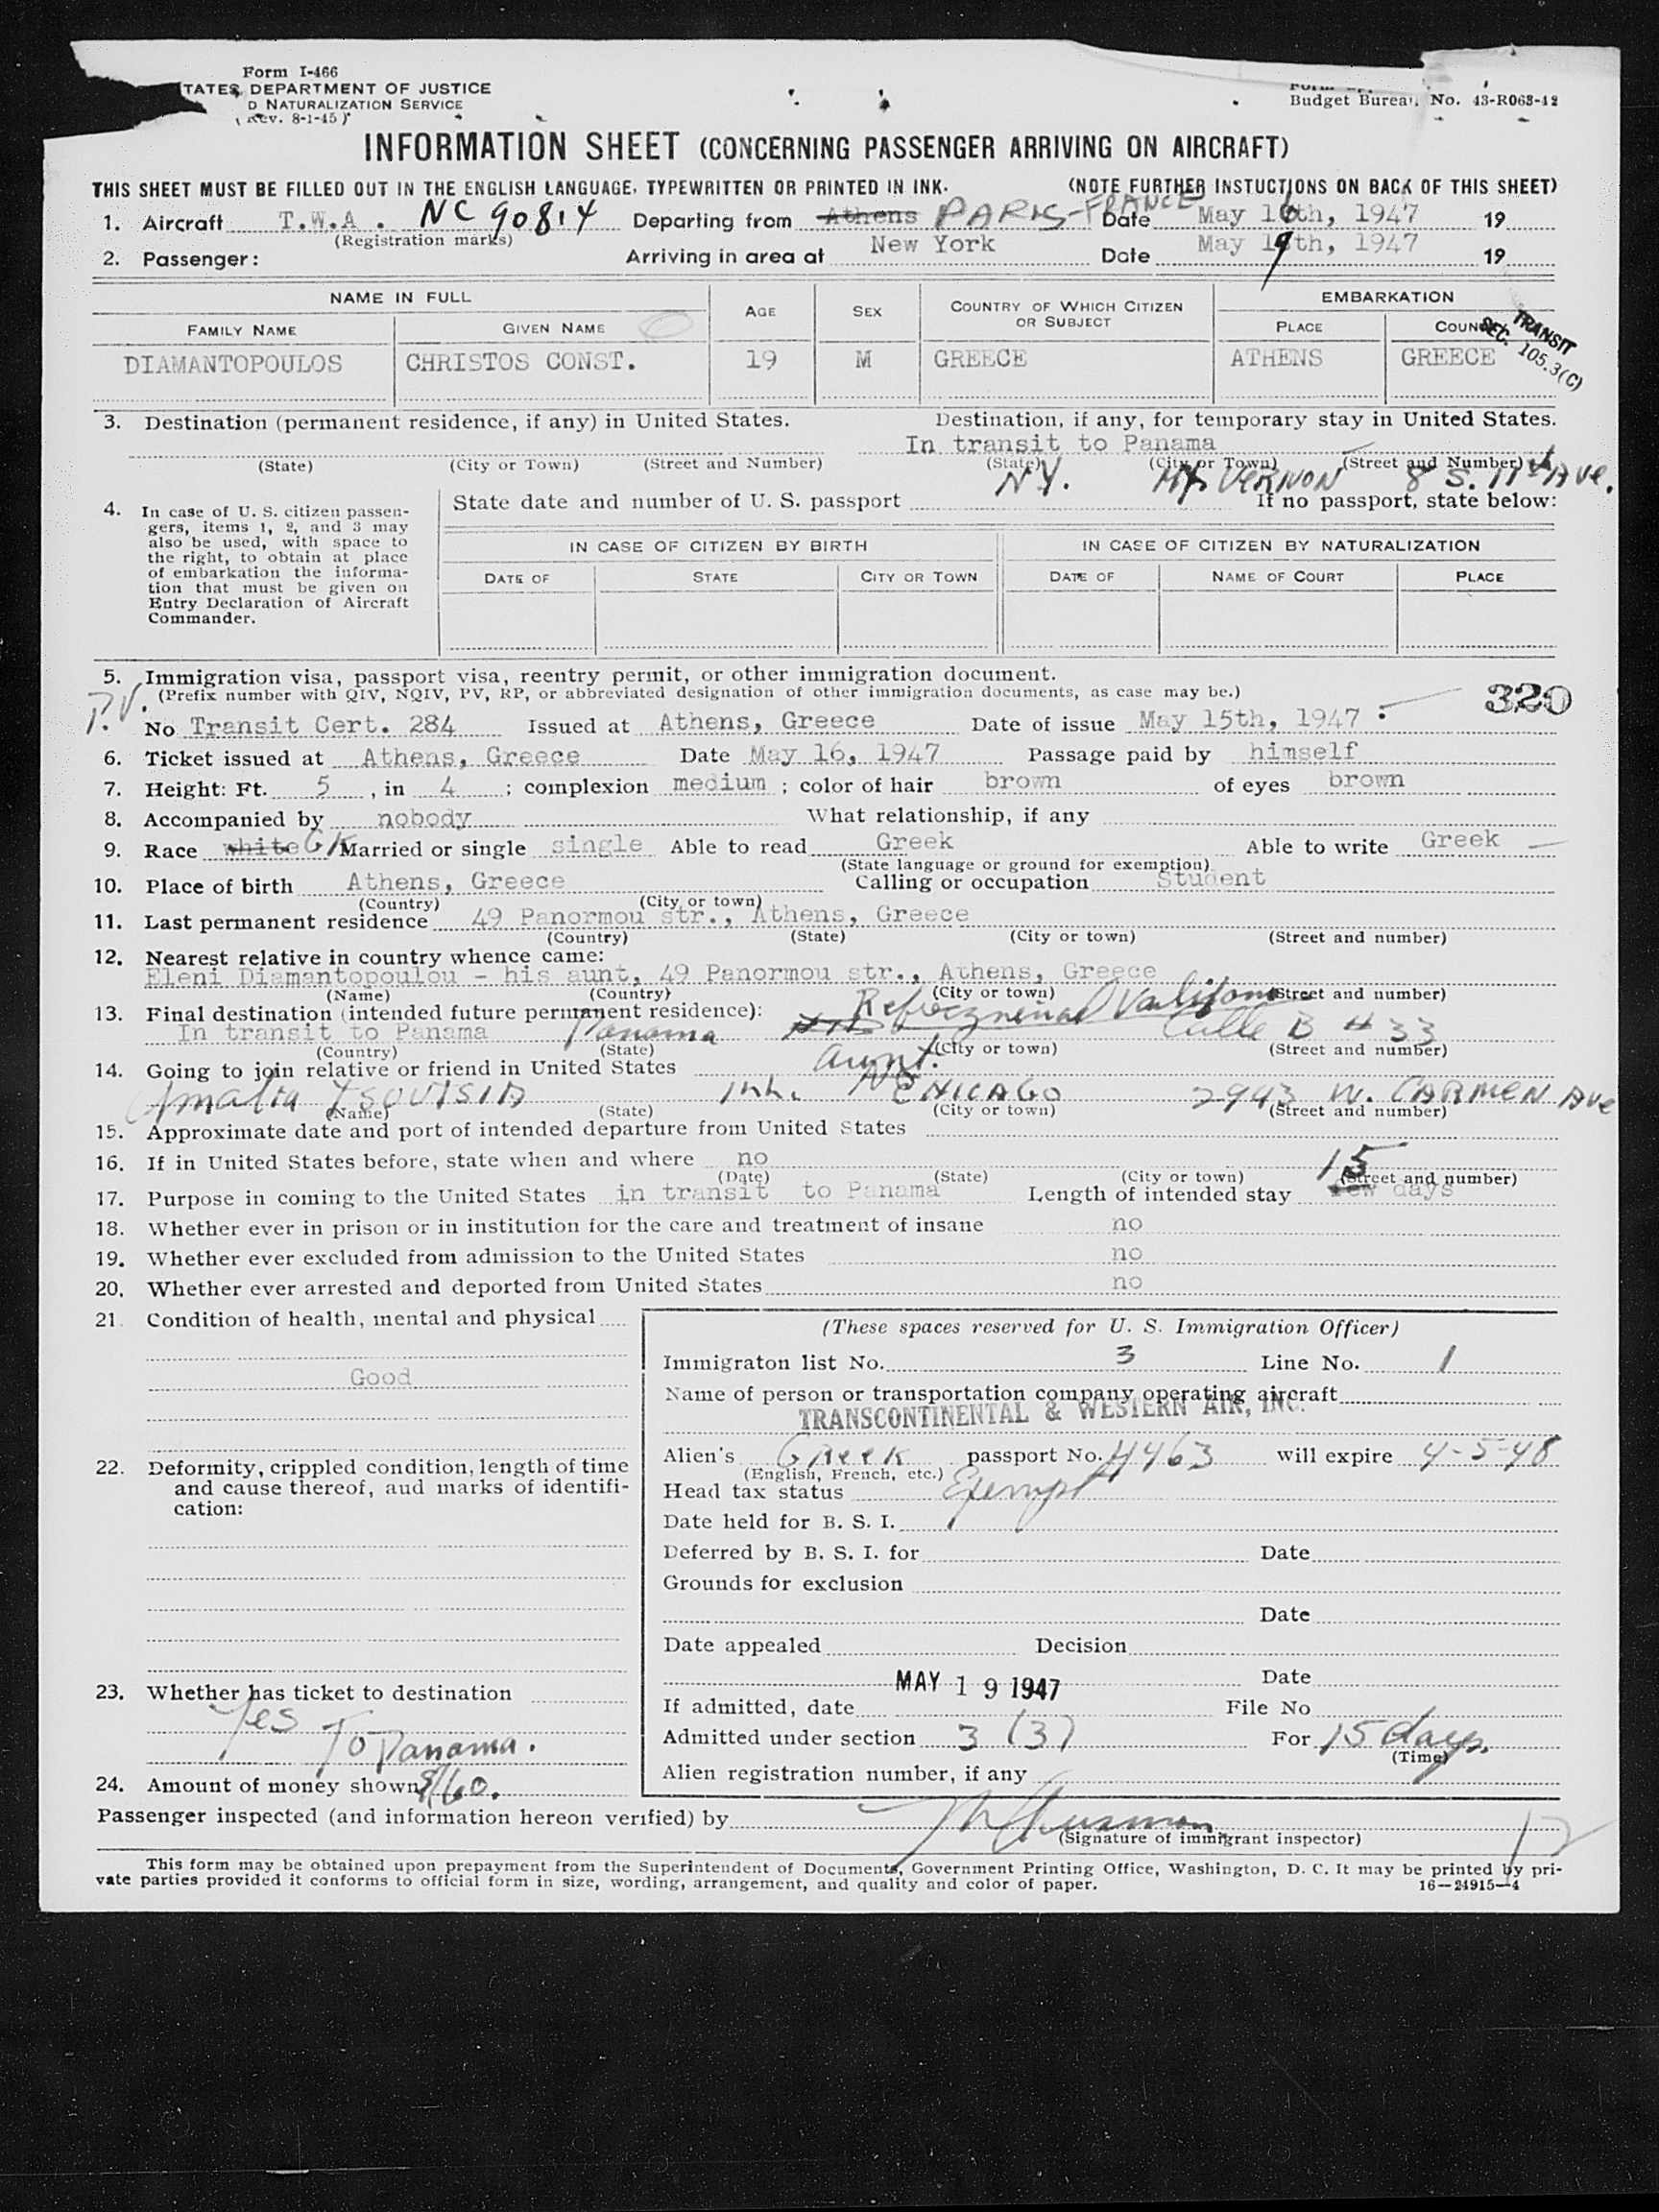 Form I-466
TATES DEPARTMENT OF JUSTICE
D NATURALIZATION SERVICE
(Rev. 8-1-45)
Budget Bureau No. 43-R063-42
INFORMATION SHEET (CONCERNING PASSENGER ARRIVING ON AIRCRAFT)
THIS SHEET MUST BE FILLED OUT IN THE ENGLISH LANGUAGE, TYPEWRITTEN OR PRINTED IN INK. (NOTE FURTHER INSTUCTIONS ON BACK OF THIS SHEET)
1. Aircraft T.W.A. NC 90814 Departing from Athens PARIS-FRANCE Date May 16th, 1947 19
(Registration marks)
2. Passenger: Arriving in area at New York Date May 19th, 1947 19
NAME IN FULL AGE SEX COUNTRY OF WHICH CITIZEN OR SUBJECT EMBARKATION
FAMILY NAME GIVEN NAME PLACE COUNTRY
TRANSIT SEC. 105.3(C)
DIAMANTOPOULOS CHRISTOS CONST. 19 M GREECE ATHENS GREECE
3. Destination (permanent residence, if any) in United States. Destination, if any, for temporary stay in United States.
In transit to Panama
(State) (City or Town) (Street and Number) (State) (City or Town) (Street and Number)
N.Y. Mt. VERNON 8 S. 11th Ave.
4. In case of U. S. citizen passen-
gers, items 1, 2, and 3 may
also be used, with space to
the right, to obtain at place
of embarkation the informa-
tion that must be given on
Entry Declaration of Aircraft
Commander.
State date and number of U. S. passport If no passport, state below:
IN CASE OF CITIZEN BY BIRTH IN CASE OF CITIZEN BY NATURALIZATION
DATE OF STATE CITY OR TOWN DATE OF NAME OF COURT PLACE
5. Immigration visa, passport visa, reentry permit, or other immigration document.
(Prefix number with QIV, NQIV, PV, RP, or abbreviated designation of other immigration documents, as case may be.)
320
P.V. No Transit Cert. 284 Issued at Athens, Greece Date of issue May 15th, 1947
6. Ticket issued at Athens, Greece Date May 16, 1947 Passage paid by himself
7. Height: Ft. 5, in 4; complexion medium; color of hair brown of eyes brown
8. Accompanied by nobody What relationship, if any
9. Race white GK Married or single single Able to read Greek Able to write Greek
(State language or ground for exemption)
10. Place of birth Athens, Greece Calling or occupation Student
(Country) (City or town)
11. Last permanent residence 49 Panormou str., Athens, Greece
(Country) (State) (City or town) (Street and number)
12. Nearest relative in country whence came:
Eleni Diamantopoulou - his aunt, 49 Panormou str., Athens, Greece
(Name) (Country) (City or town) (Street and number)
13. Final destination (intended future permanent residence):
In transit to Panama Panama Calle B # 33
(Country) (State) (City or town) (Street and number)
14. Going to join relative or friend in United States aunt.
Amalia TSOUTSIA Ill. CHICAGO 2943 W. CARMEN Ave
(Name) (State) (City or town) (Street and number)
15. Approximate date and port of intended departure from United States
16. If in United States before, state when and where no
(Date) (State) (City or town) (Street and number)
17. Purpose in coming to the United States in transit to Panama Length of intended stay 15 few days
18. Whether ever in prison or in institution for the care and treatment of insane no
19. Whether ever excluded from admission to the United States no
20. Whether ever arrested and deported from United States no
21. Condition of health, mental and physical
Good
22. Deformity, crippled condition, length of time
and cause thereof, aud marks of identifi-
cation:
23. Whether has ticket to destination
Yes To Panama.
24. Amount of money shown $160.
(These spaces reserved for U. S. Immigration Officer)
Immigraton list No. 3 Line No. 1
Name of person or transportation company operating aircraft
TRANSCONTINENTAL & WESTERN AIR, INC.
Alien's Greek passport No. 4463 will expire 4-5-48
(English, French, etc.)
Head tax status Exempt
Date held for B. S. I.
Deferred by B. S. I. for Date
Grounds for exclusion
Date
Date appealed Decision
Date
MAY 19 1947
If admitted, date File No
Admitted under section 3 (3) For 15 days.
(Time)
Alien registration number, if any
Passenger inspected (and information hereon verified) by
(Signature of immigrant inspector)
This form may be obtained upon prepayment from the Superintendent of Documents, Government Printing Office, Washington, D. C. It may be printed by pri-
vate parties provided it conforms to official form in size, wording, arrangement, and quality and color of paper. 16-24915-4